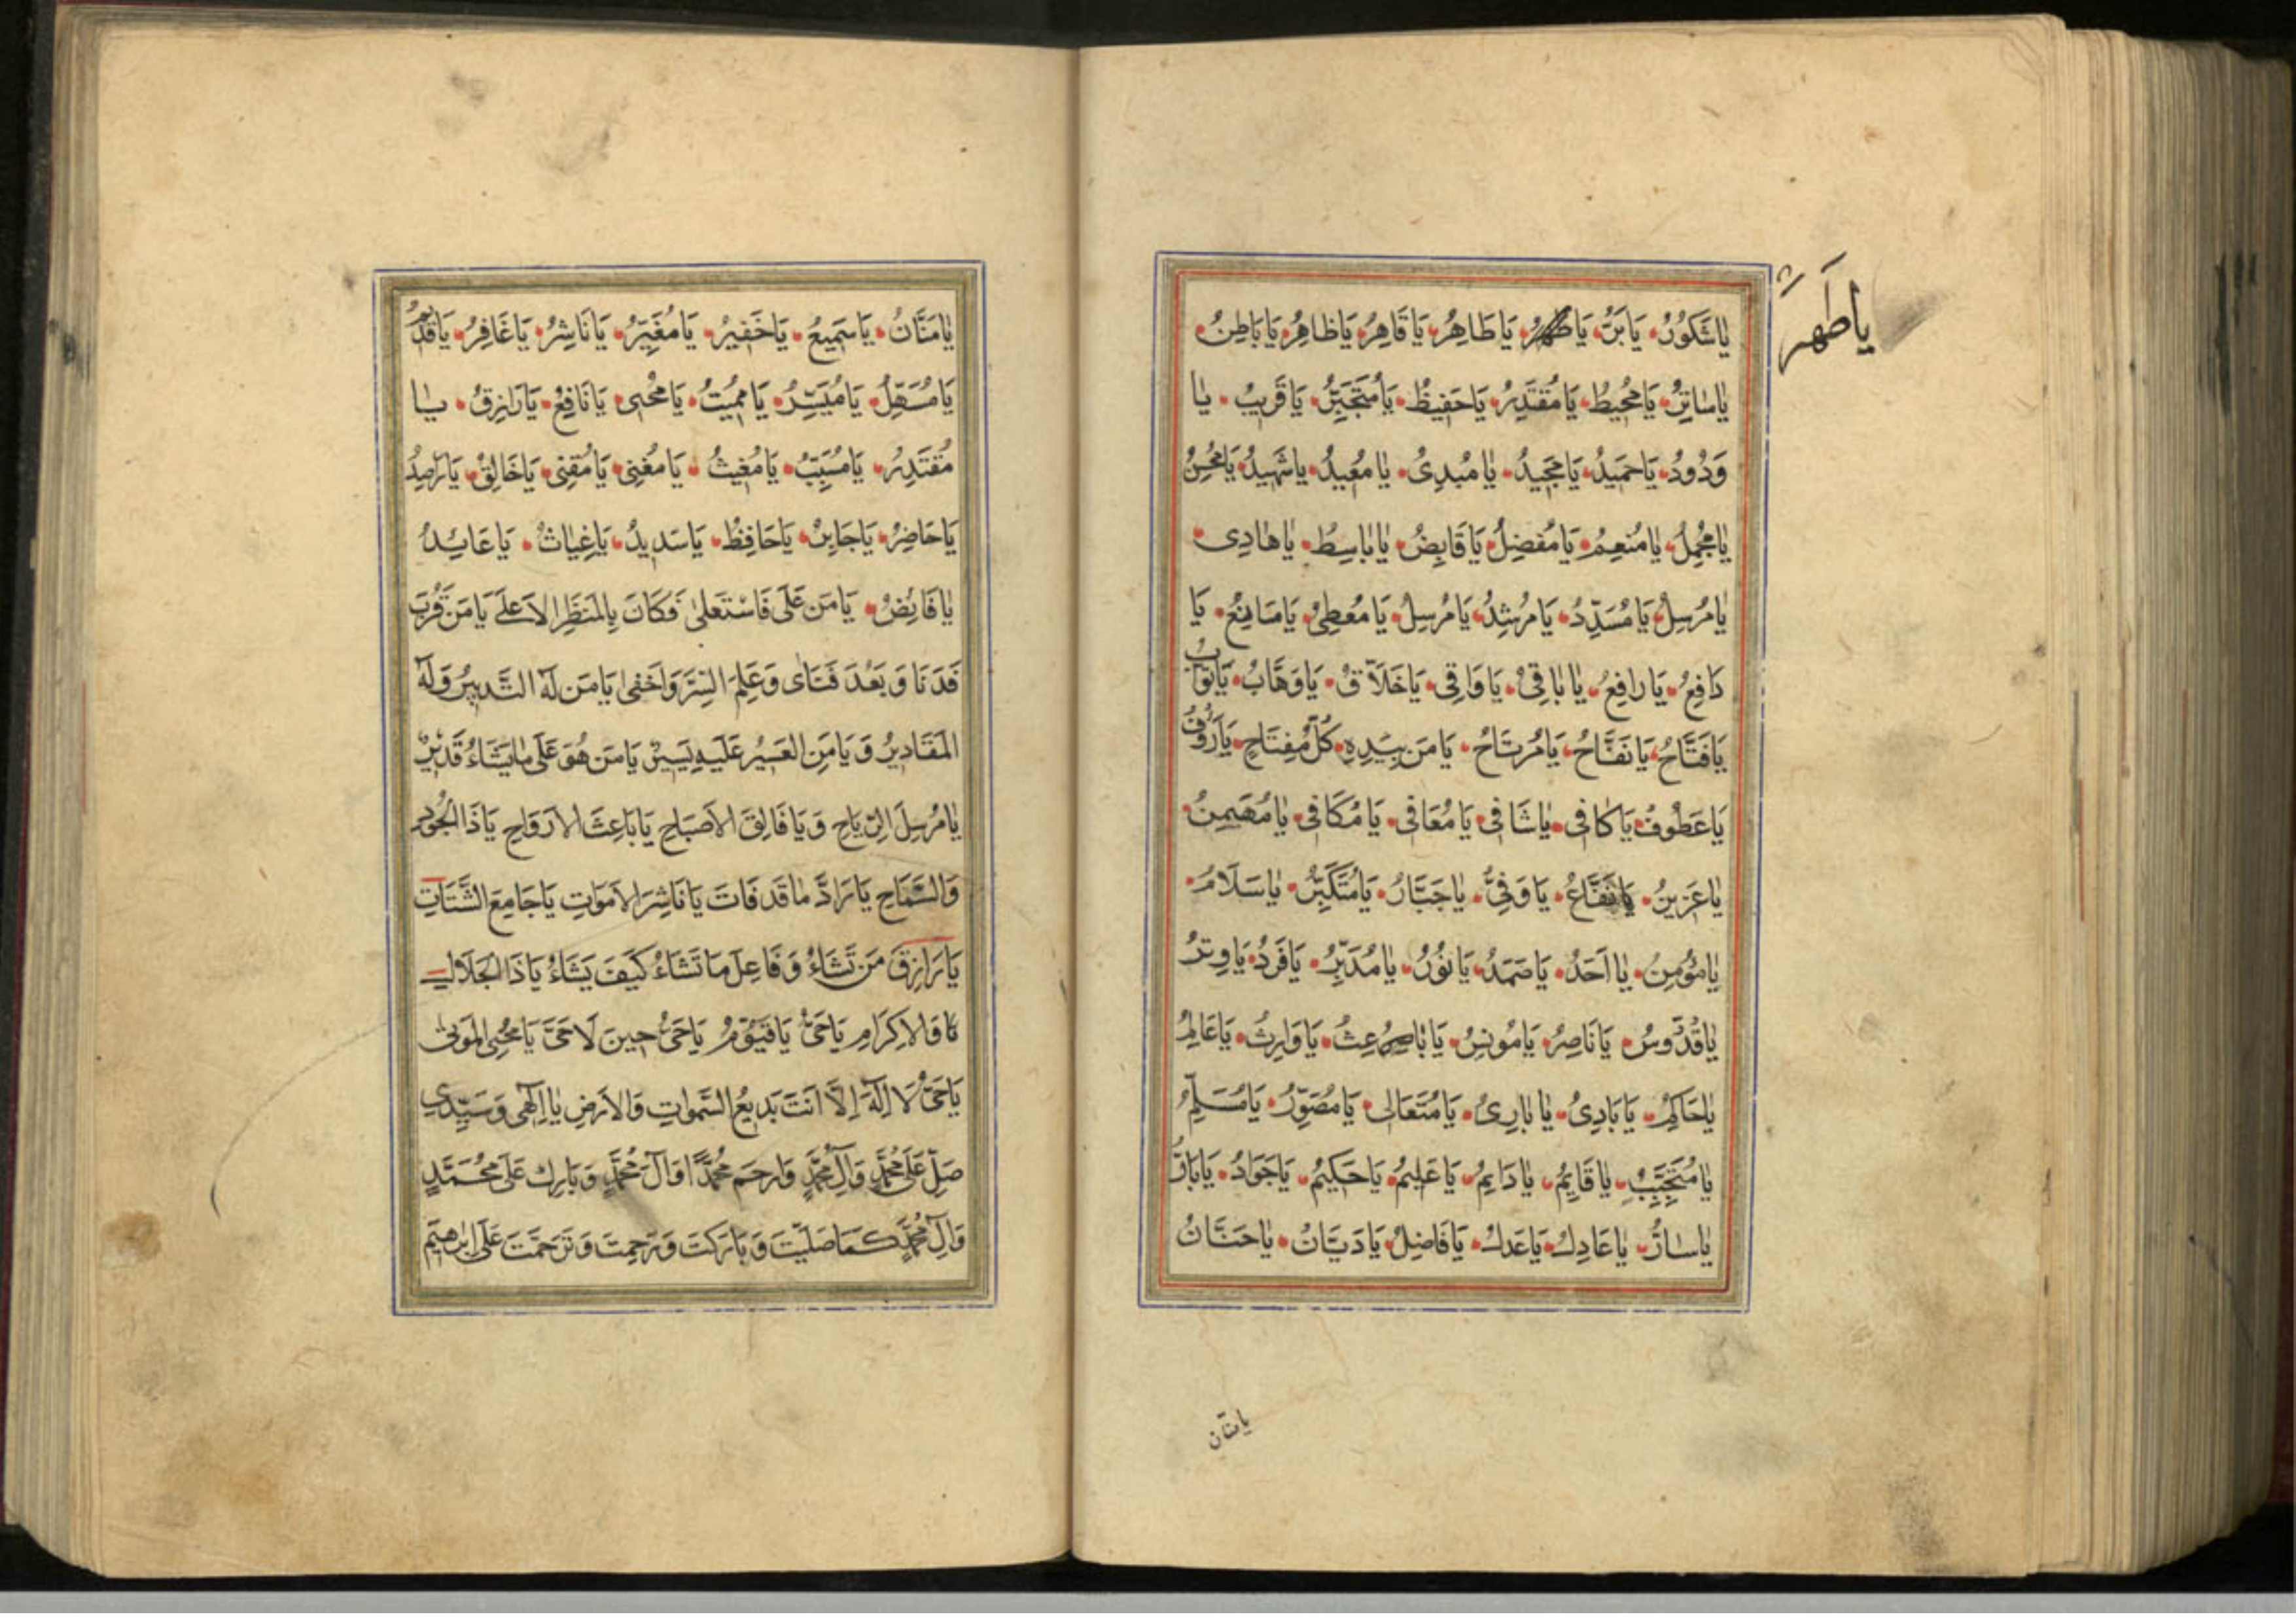 يا شَكُورُ يا بَرُّ يا طُهْرُ يا طَاهِرُ يا قَاهِرُ يا ظاهِرُ يا بَاطِنُ
يا طُهْرُ
يا ساتِرُ يا مُحيطُ يا مُقْتَدِرُ يا حَفيظُ يا مُتَجَبِّرُ يا قَريبُ يا
وَدُودُ يا حَميدُ يا مَجيدُ يا مُبْدِئُ يا مُعيدُ يا شَهيدُ يا مُحْسِنُ
يا مُجْمِلُ يا مُنْعِمُ يا مُفْضِلُ يا قَابِضُ يا باسِطُ يا هادى
يا مُرْسِلُ يا مُسَدِّدُ يا مُرْشِدُ يا مُرْسِلُ يا مُعْطى يا مَانِعُ يا
دَافِعُ يا رافِعُ يا باقى يا وَاقى يا خَلاَّقُ يا وَهَّابُ يا تَوَّابُ
يا فَتَّاحُ يا نَفَّاحُ يا مُرْتَاحُ يا مَنْ بِيَدِهِ كُلُّ مِفْتَاحٍ يا رَؤُفُ
يا عَطُوفُ يا كافى يا شَافى يا مُعَافى يا مُكَافى يا مُهَيْمِنُ
يا عَزيزُ يا نَفَّاعُ يا وَفِىُّ يا جَبَّارُ يا مُتَكَبِّرُ يا سَلَامُ
يا مُؤْمِنُ يا اَحَدُ يا صَمَدُ يا نُورُ يا مُدَبِّرُ يا فَرْدُ يا وِتْرُ
يا قُدُّوسُ يا نَاصِرُ يا مُونِسُ يا باعِثُ يا وَارِثُ يا عَالِمُ
يا حَاكِمُ يا بَادِئُ يا بارِئُ يا مُتَعَالى يا مُصَوِّرُ يا مُسَلِّمُ
يا مُتَحَبِّبُ يا قَايِمُ يا دَايِمُ يا عَليمُ يا حَكيمُ يا جَوَادُ يا بَارُّ
يا سارُّ يا عَادِلُ يا عَدْلُ يا فَاضِلُ يا دَيَّانُ يا حَنَّانُ
يا منّان
يا مَنَّانُ يا سَميعُ يا خَفيرُ يا مُغَيِّرُ يا نَاشِرُ يا غَافِرُ يا قَديمُ
يا مُسَهِّلُ يا مُيَسِّرُ يا مُميتُ يا مُحْيى يا نَافِعُ يا رَازِقُ يا
مُقْتَدِرُ يا مُسَبِّبُ يا مُغيثُ يا مُغْنى يا مُقْنى يا خَالِقُ يا رَاصِدُ
يا حَاضِرُ يا جَابِرُ يا حَافِظُ يا سَديدُ يا غِياثُ يا عَايِدُ
يا قَابِضُ يا مَنْ عَلَى فَاسْتَعْلى فَكَانَ بِالْمَنْظَرِ الاَعْلَے يا مَنْ قَرُبَ
فَدَنَا وَ بَعُدَ فَنَاى وَعَلِمَ السِّرَّ وَاَخْفى يا مَنْ لَهُ التَّدبيرُ وَلَهُ
المَقَاديرُ وَ يا مَنِ العَسيرُ عَلَيْهِ يَسيرٌ يا مَنْ هُوَ عَلَى ما يَشَاءُ قَديرٌ
يا مُرْسِلَ الرِّيَاحِ وَ يا فَالِقَ الاَصْبَاحِ يا بَاعِثَ الاَرْوَاحِ يا ذَا الْجُودِ
وَالسَّمَاحِ يا رَادَّ ما قَدْ فَاتَ يا نَاشِرَ الاَمْوَاتِ يا جَامِعَ الشَّتَاتِ
يا رَازِقَ مَنْ تَشَاءُ وَ فَاعِلَ مَا تَشَاءُ كَيْفَ يَشَاءُ يا ذَا الْجَلَالِ
وَالاِكْرَامِ يا حَىُّ يا قَيُّومُ يا حَىُّ حينَ لَا حَىَّ يا مُحْيِىَ الْمَوْتى
يا حَىُّ لَا اِلَهَ اِلَّا اَنْتَ بَديعُ السَّموَاتِ وَالاَرْضِ يا اِلَهى وَسَيِّدى
صَلِّ عَلَى مُحَمَّدٍ وَآلِ مُحَمَّدٍ وَارْحَمْ مُحَمَّدًا وَآلَ مُحَمَّدٍ وَبَارِكْ عَلَى مُحَمَّدٍ
وَآلِ مُحَمَّدٍ كَمَا صَلَّيْتَ وَ بَارَكْتَ وَ رَحِمْتَ وَ تَرَحَّمْتَ عَلَى اِبْرهيمَ